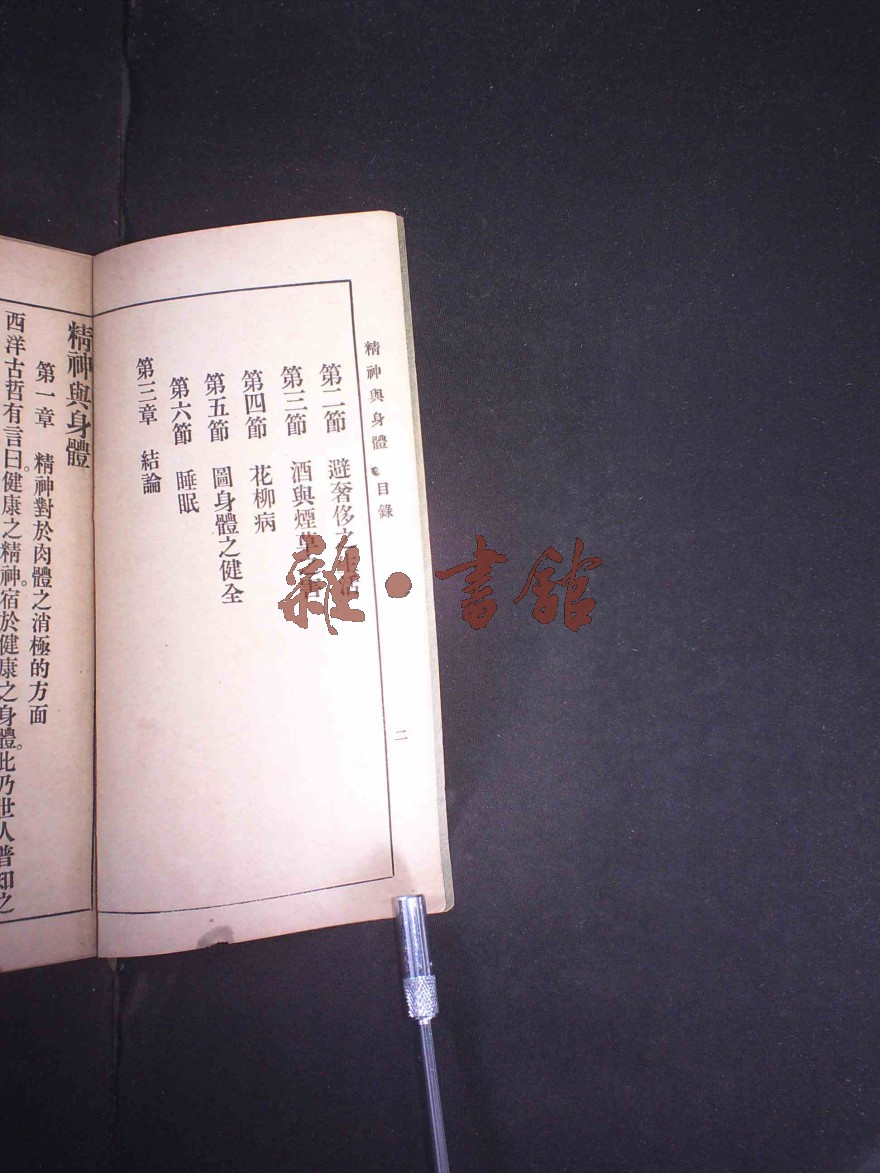 精神與身體 目錄
二
第二節 避奢侈之生活
第三節 酒與煙草之害
第四節 花柳病
第五節 圖身體之健全
第六節 睡眠
第三章 結論
精神與身體
第一章 精神對於肉體之消極的方面
西洋古哲有言曰。健康之精神。宿於健康之身體。此乃世人普知之
雜·書館